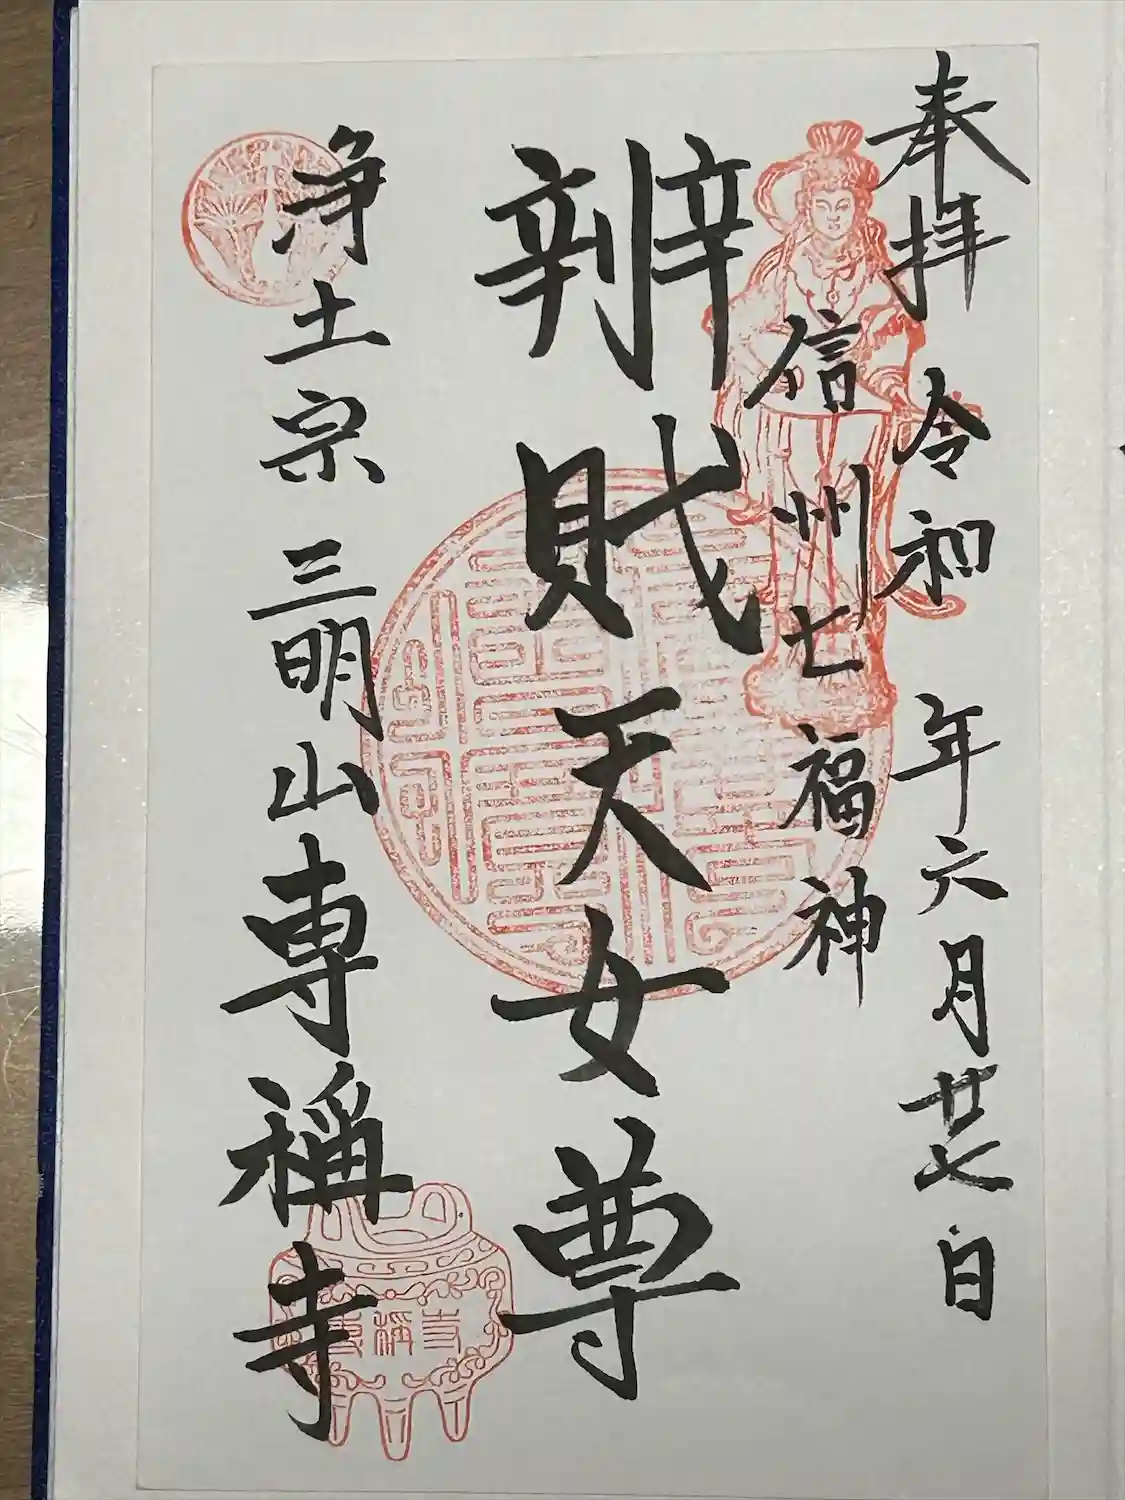 奉拝 令和 年六月廿七日
信州七福神
辨財天女尊
浄土宗 三明山専稱寺
専稱寺